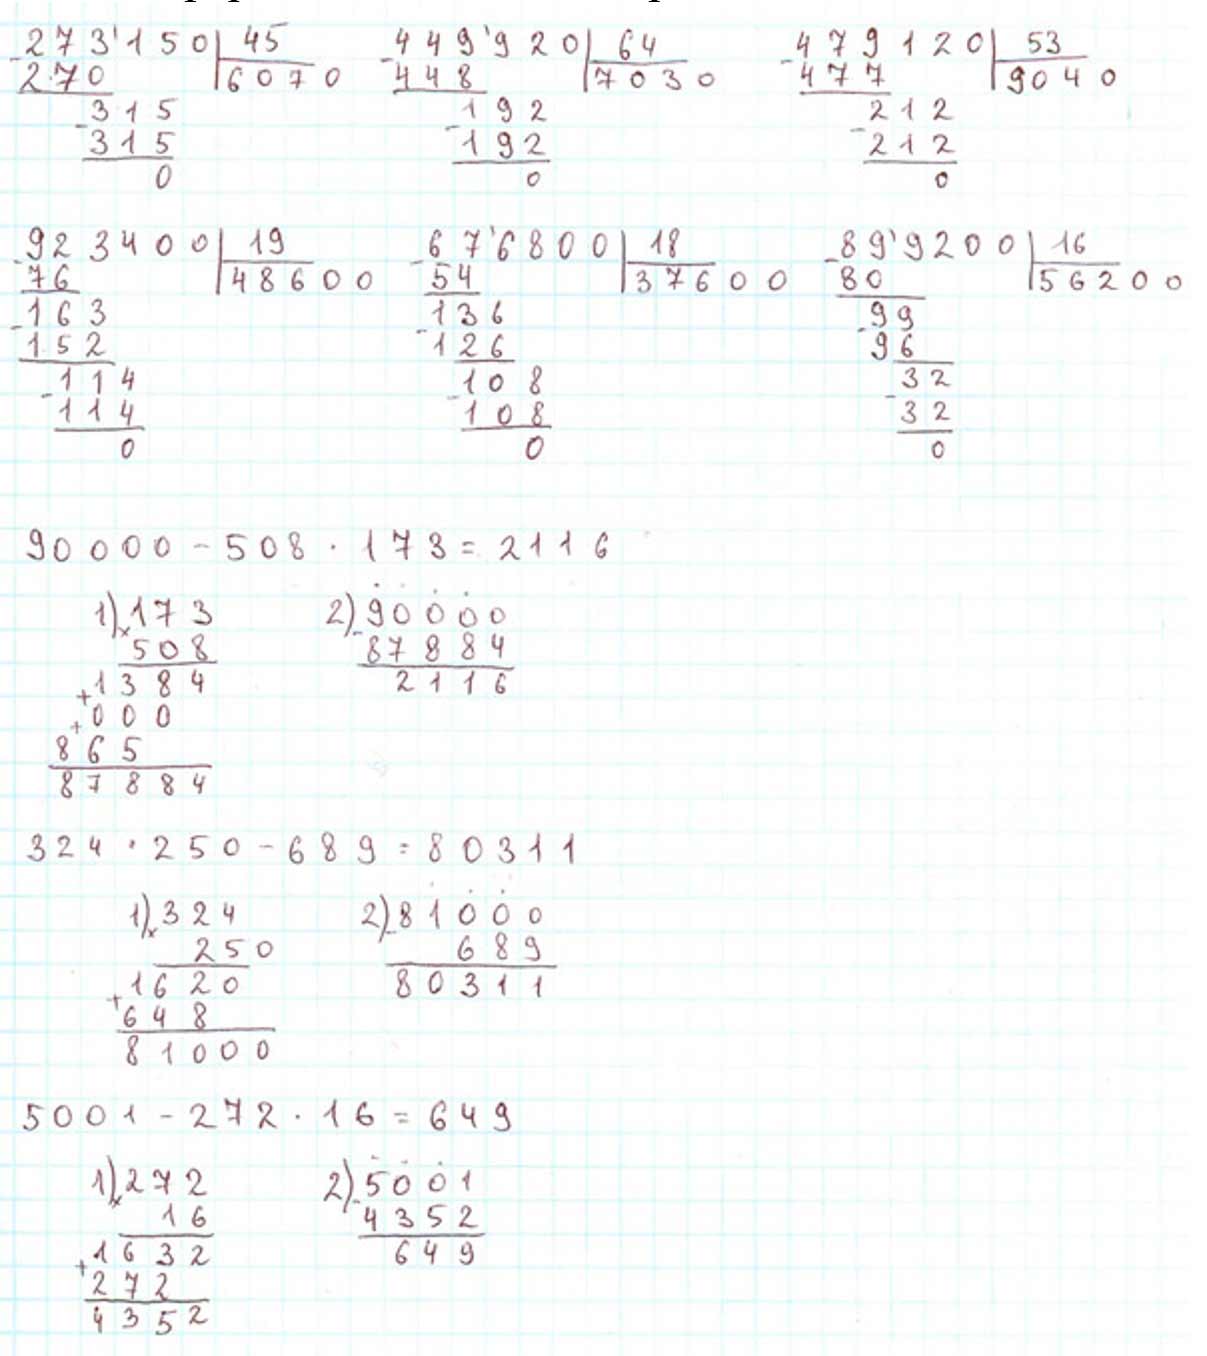 -273'150 | 45
270 | 6070
-315
315
0
-449'920 | 64
448 | 7030
-192
192
0
-479120 | 53
477 | 9040
-212
212
0
-923400 | 19
76 | 48600
-163
152
-114
114
0
-67'6800 | 18
54 | 37600
-136
126
-108
108
0
-89'9200 | 16
80 | 56200
-99
96
-32
32
0
90000 - 508 · 173 = 2116
1) x173
508
+1384
+000
865
87884
2) -90000
87884
2116
324 · 250 - 689 = 80311
1) x324
250
+1620
648
81000
2) -81000
689
80311
5001 - 272 · 16 = 649
1) x272
16
+1632
272
4352
2) -5001
4352
649